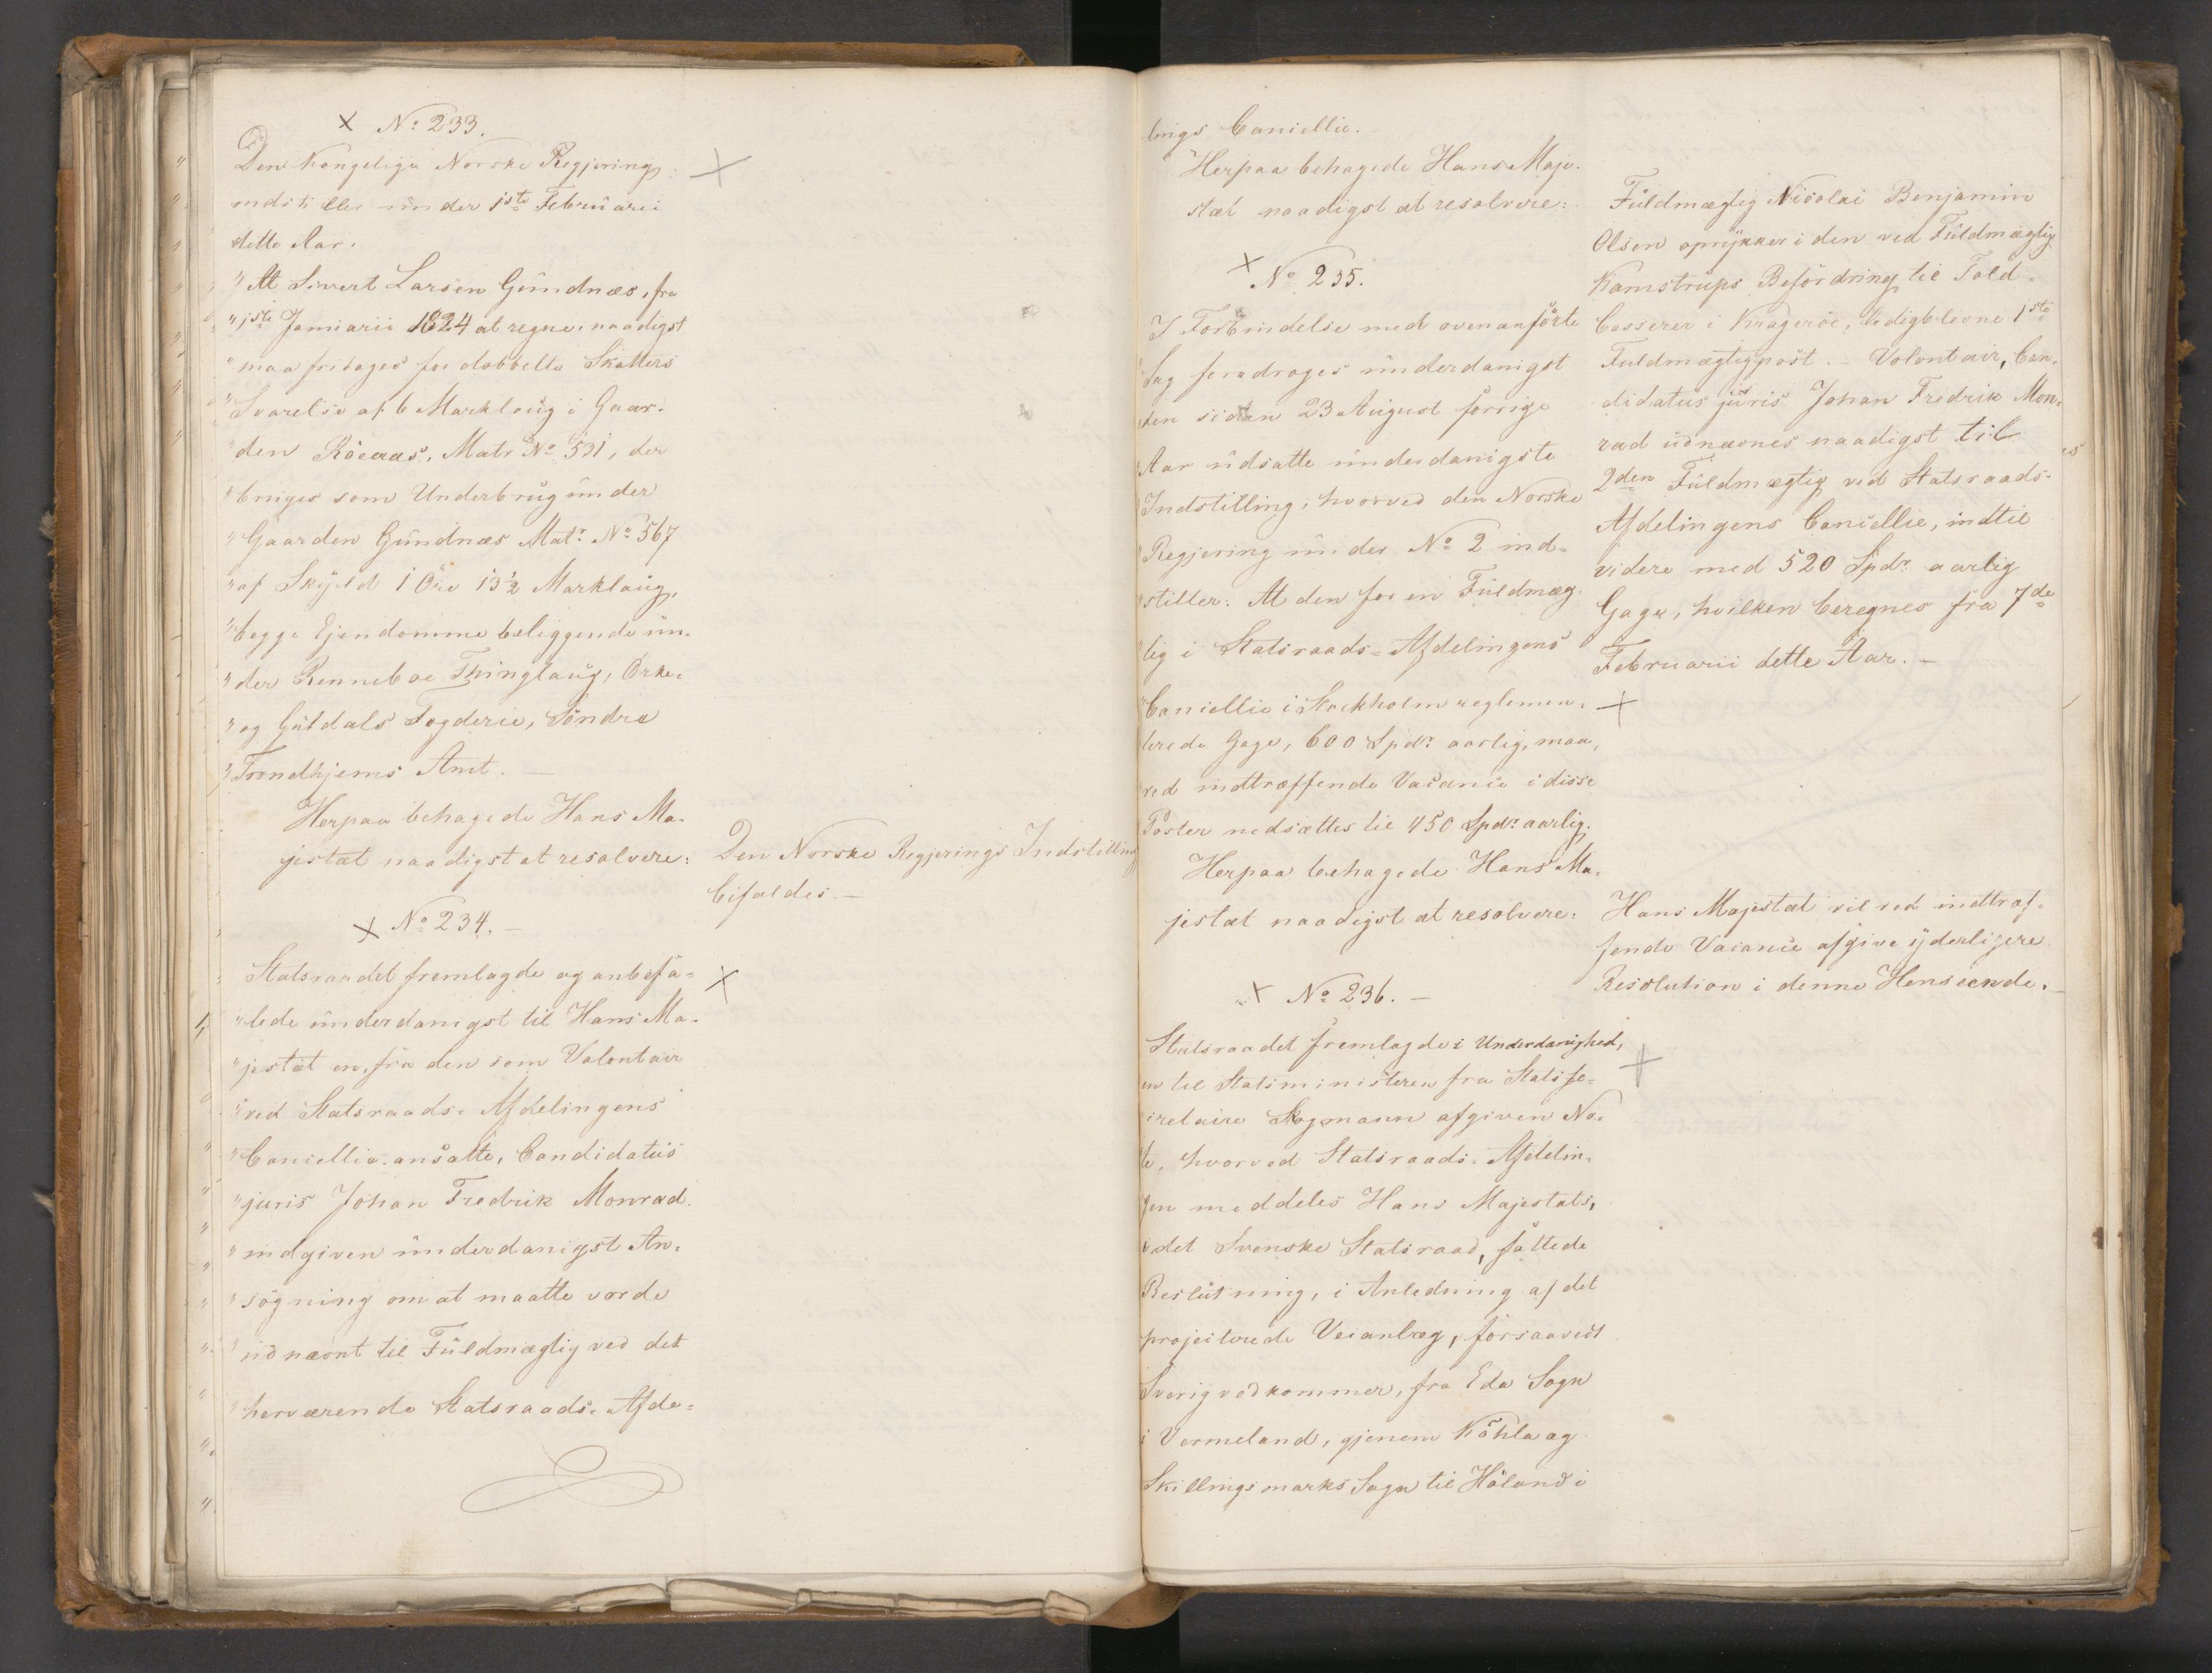 × No 233.
Den Kongelige Norske Regjering
indstiller under 1ste Februarii
dette Aar.
"At Sivert Larsen Gundnæs, fra
"1ste Januarii 1824 at regne, naadigst
"maa fritages for dobbelte Skatters
"Svarelse af 6 Marklaug i Gaar-
"den Röeaas, Matr No 531, der
"bruges som Underbrug under
"Gaarden Gundnæs Matr. No 567
"af Skyld 1 Öre 13½ Marklaug,
"begge Ejendomme beliggende un-
"der Renneboe Thinglaug, Örke-
"og Guldals Fogderie, Söndre
"Trondhjems Amt. —
Herpaa behagede Hans Ma-
jestæt naadigst at resolvere:
Den Norske Regjerings Indstilling
bifaldes. —
× No 234. —
Statsraadet fremlagde og anbefa-
"lede underdanigst til Hans Ma-
"jestæt en, fra den som Volontair
"ved Statsraads-Afdelingens
"Cancellie ansatte, Candidatus
"juris Johan Fredrik Monrad
"indgiven underdanigst An-
"sögning om at maatte vorde
"udnævnt til Fuldmægtig ved det
"herværende Statsraads-Afde-
lings Cancellie.
Herpaa behagede Hans Maje-
stæt naadigst at resolvere:
Fuldmægtig Nicolai Benjamin
Olsen oprykker i den ved Fuldmægtig
Kamstrups Befordring til Told-
Casserer i Kragerøe, ledigblevne 1ste
Fuldmægtigpost. — Volontair, Can-
didatus juris Johan Fredrik Mon-
rad udnævnes naadigst til
2den Fuldmægtig ved Statsraads-
Afdelingens Cancellie, indtil
videre med 520 Spdr aarlig
Gage, hvilken beregnes fra 7de
Februarii dette Aar. —
× No 235.
I Forbindelse med ovenanförte
Sag foredroges underdanigst
den siden 23 August forrige
Aar udsatte underdanigste
Indstilling, hvorved den Norske
Regjering under No 2 ind-
stiller: At den for en Fuldmæg-
tig i Statsraads-Afdelingens
Cancellie i Stockholm reglemen-
terede Gage, 600 Spdr aarlig, maa,
ved indtræffende Vacance i disse
Poster nedsættes til 450 Spdr aarlig.
Herpaa behagede Hans Ma-
jestæt naadigst at resolvere:
Hans Majestæt vil ved indtræf-
fende Vacance afgive yderligere
Resolution i denne Henseende. —
× No 236. —
Statsraadet fremlagde i Underdanighed,
en til Statsministeren fra Statsse-
cretaire Skogmann afgiven No-
te, hvorved Statsraads-Afdelin-
gen meddeles Hans Majestæts,
i det Svenske Statsraad, fattede
Beslutning, i Anledning af det
projecterede Veianlæg, forsaavidt
Sverig vedkommer, fra Eda Sogn
i Vermeland, gjenem Köhla og
Skillingsmarks Sogn til Höland i